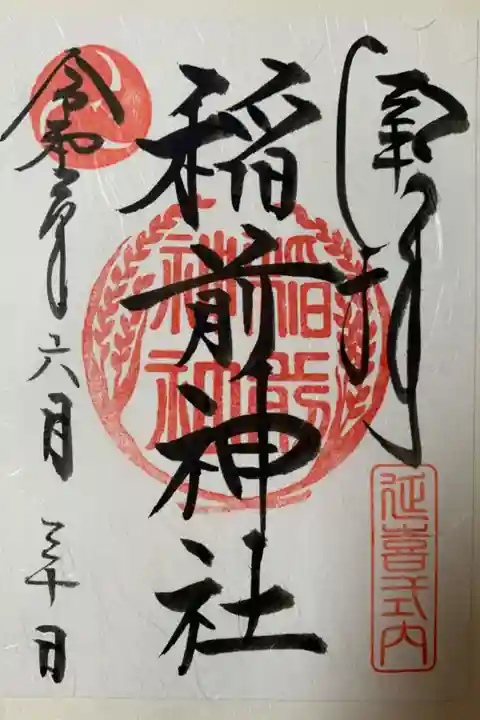 奉拝
延喜式内
稲前神社
稲前
神社
令和二年六月三十日